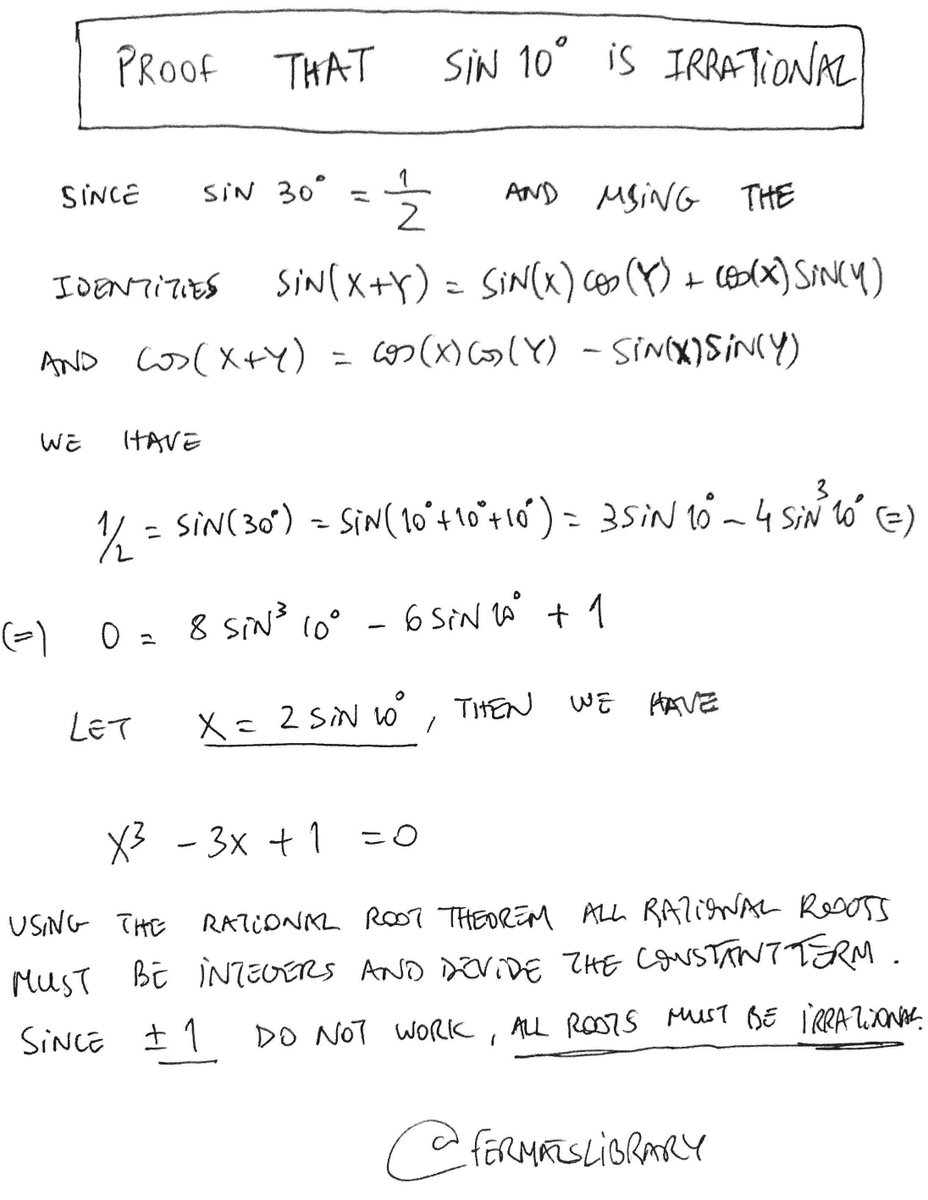 PROOF THAT SIN 10° IS IRRATIONAL
SINCE SIN 30° = 1/2 AND USING THE
IDENTITIES SIN(X+Y) = SIN(X)COS(Y) + COS(X)SIN(Y)
AND COS(X+Y) = COS(X)COS(Y) - SIN(X)SIN(Y)
WE HAVE
1/2 = SIN(30°) = SIN(10°+10°+10°) = 3SIN 10° - 4 SIN³ 10° (=)
(=) 0 = 8 SIN³ 10° - 6 SIN 10° + 1
LET X = 2 SIN 10°, THEN WE HAVE
X³ - 3X + 1 = 0
USING THE RATIONAL ROOT THEOREM ALL RATIONAL ROOTS
MUST BE INTEGERS AND DIVIDE THE CONSTANT TERM.
SINCE ± 1 DO NOT WORK, ALL ROOTS MUST BE IRRATIONAL.
@FERMATSLIBRARY